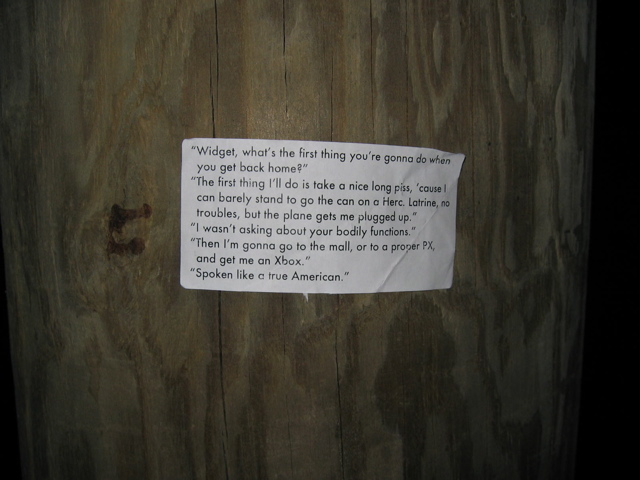 "Widget, what's the first thing you're gonna do when
you get back home?"
"The first thing I'll do is take a nice long piss, 'cause I
can barely stand to go the can on a Herc. Latrine, no
troubles, but the plane gets me plugged up."
"I wasn't asking about your bodily functions."
"Then I'm gonna go to the mall, or to a proper PX,
and get me an Xbox."
"Spoken like a true American."